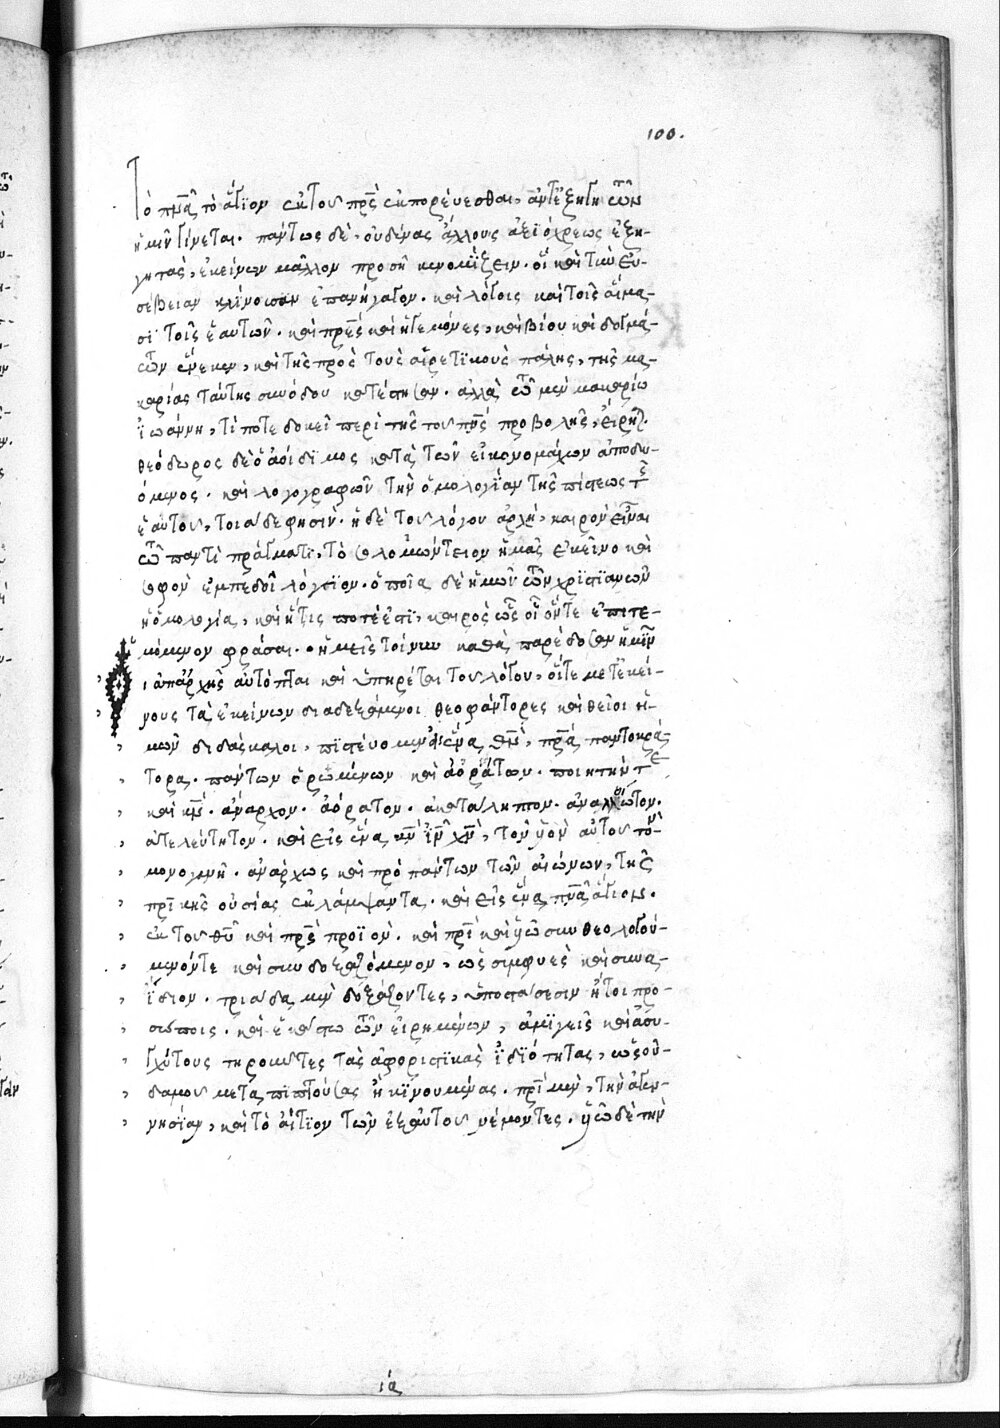 100.
Τὸ πνᾶ τὸ ἅγϊον ἐκ τοῦ πρς ἐκπορεύεσθαι,
ἡμῖν γίνεται. πάντως δὲ, οὐδένας ἄλλους ἀξιόχρεως ἐξη-
γητὰς, ἐκείνων μᾶλλον προσῆκε νομΐζειν. οἳ καὶ τὴν εὐ-
σέβειαν καὶ λόγοις καὶ τοῖς αἵμα-
σϊ τοῖς ἑαυτῶν. καὶ πρες καὶ ἡγεμόνες, καὶ βίου καὶ δογμά-
των ἕνεκεν, καὶ τῆς πρὸς τοὺς αἱρετϊκοὺς πάλης, τῆς μα-
καρίας ταύτης συνόδου κατέστησαν. ἀλλὰ τῶ μὲν μακαρίω
ἰωάννη, τί ποτε δοκεῖ περὶ τῆς τοῦ πνς προβολῆς, εἴρητ.
θεόδωρος δὲ ὁ ἀοίδϊμος κατὰ τῶν εἰκονομάχων ἀποδυ-
όμενος. καὶ λογογραφῶν τὴν ὁμολογΐαν τῆς πίστεως τ
ἑαυτοῦ, τοιάδε φησίν. ἡ δὲ τοῦ λόγου ἀρχὴ, καιρὸν εἶναι
τῶ παντὶ πράγματι, τὸ σολομώντειον ἡμᾶς ἐκεῖνο καὶ
σοφὸν ἐμπεδοῖ λόγϊον. ὁποῖα δὲ ἡμῶν τῶν χριστϊανῶν
ἡ ὁμολογία, καὶ ἥτις ποτέ ἐστϊ, καιρὸς ὡς οἷόν τε ἐπιτε-
μόμενον φράσαι. ἡμεῖς τοίνυν καθὰ παρέδοσαν ἡμῖν
οἱ ἀπαρχῆς αὐτόπται καὶ ὑπηρέται τοῦ λόγου, οἵ τε μετ' ἐκεί-
νους τὰ ἐκείνων διαδεξάμενοι θεοφάντορες καὶ θεῖοι ἡ-
μῶν διδάσκαλοι, πϊστεύομεν εἰς ἕνα θν, πρα παντοκρά-
τορα. πάντων ὁρωμένων καὶ ἀοράτων. ποιητήν τε
καὶ κν. ἄναρχον. ἀόρατον. ἀκατάληπτον. ἀναλλοίωτον.
ἀτελεύτητον. καὶ εἰς ἕνα κν ιν χν, τὸν υἱὸν αὐτοῦ τὸν
μονογενῆ. ἀνάρχως καὶ πρὸ πάντων τῶν αἰώνων, τῆς
πρικῆς οὐσίας ἐκλάμψαντα. καὶ εἰς ἕνα πνᾶ ἅγιον.
ἐκ τοῦ θυ καὶ πρς προϊόν. καὶ πρι καὶ υἱῶ συνθεολογού-
μενόν τε καὶ συνδοξαζόμενον, ὡς συμφυὲς καὶ συνα-
ΐδιον. τριάδα μὲν δοξάζοντες, ὑποστάσεσιν ἤτοι προ-
σώποις. καὶ ἑκάστω τῶν εἰρημένων, ἀμϊγεῖς καὶ ἀσυ-
γχύτους τηροῦντες τὰς ἀφοριστϊκὰς ἰδϊότητας, ὡς οὐ-
δαμοῦ μεταπϊπτούσας ἢ κϊνουμένας. πρι μὲν, τὴν ἀγεν-
νησίαν, καὶ τὸ αἴτϊον τῶν ἐξ αὐτοῦ νέμοντες. υἱῶ δὲ τὴν
ια